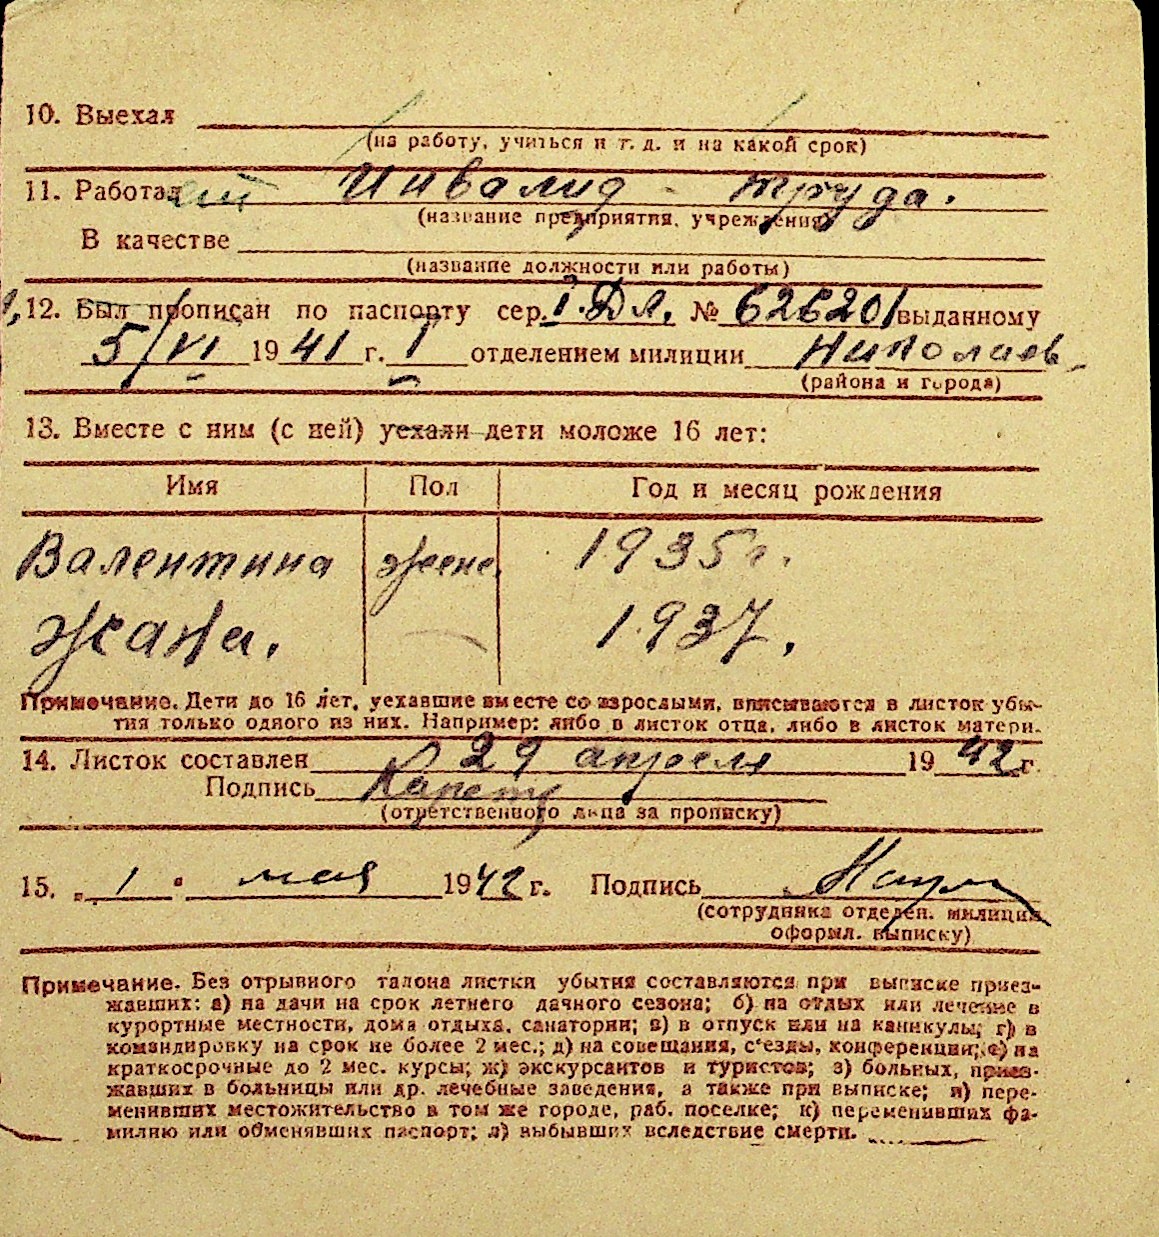 10. Выехал
(на работу, учиться и т. д. и на какой срок)
11. Работает Инвалид - труда.
(название предприятия, учреждения)
В качестве
(название должности или работы)
12. Был прописан по паспорту сер. I. Дл. № 626201 выданному
5/VI 1941 г. I отделением милиции Николаев
(района и города)
13. Вместе с ним (с ней) уехали дети моложе 16 лет:
Имя Пол Год и месяц рождения
Валентина жене. 1935 г.
Жана. 1937.
Примечание. Дети до 16 лет, уехавшие вместе со взрослыми, вписываются в листок убы-
тия только одного из них. Например: либо в листок отца, либо в листок матери.
14. Листок составлен 29 апреля 1942 г.
Подпись
(ответственного лица за прописку)
15. „ 1 " мая 1942 г. Подпись
(сотрудника отделен. милиции,
оформл. выписку)
Примечание. Без отрывного талона листки убытия составляются при выписке приез-
жавших: а) на дачи на срок летнего дачного сезона; б) на отдых или лечение в
курортные местности, дома отдыха, санатории; в) в отпуск или на каникулы; г) в
командировку на срок не более 2 мес.; д) на совещания, с'езды, конференции; е) на
краткосрочные до 2 мес. курсы; ж) экскурсантов и туристов; з) больных, приез-
жавших в больницы или др. лечебные заведения, а также при выписке; и) пере-
менивших местожительство в том же городе, раб. поселке; к) переменивших фа-
милию или обменявших паспорт; л) выбывших вследствие смерти.